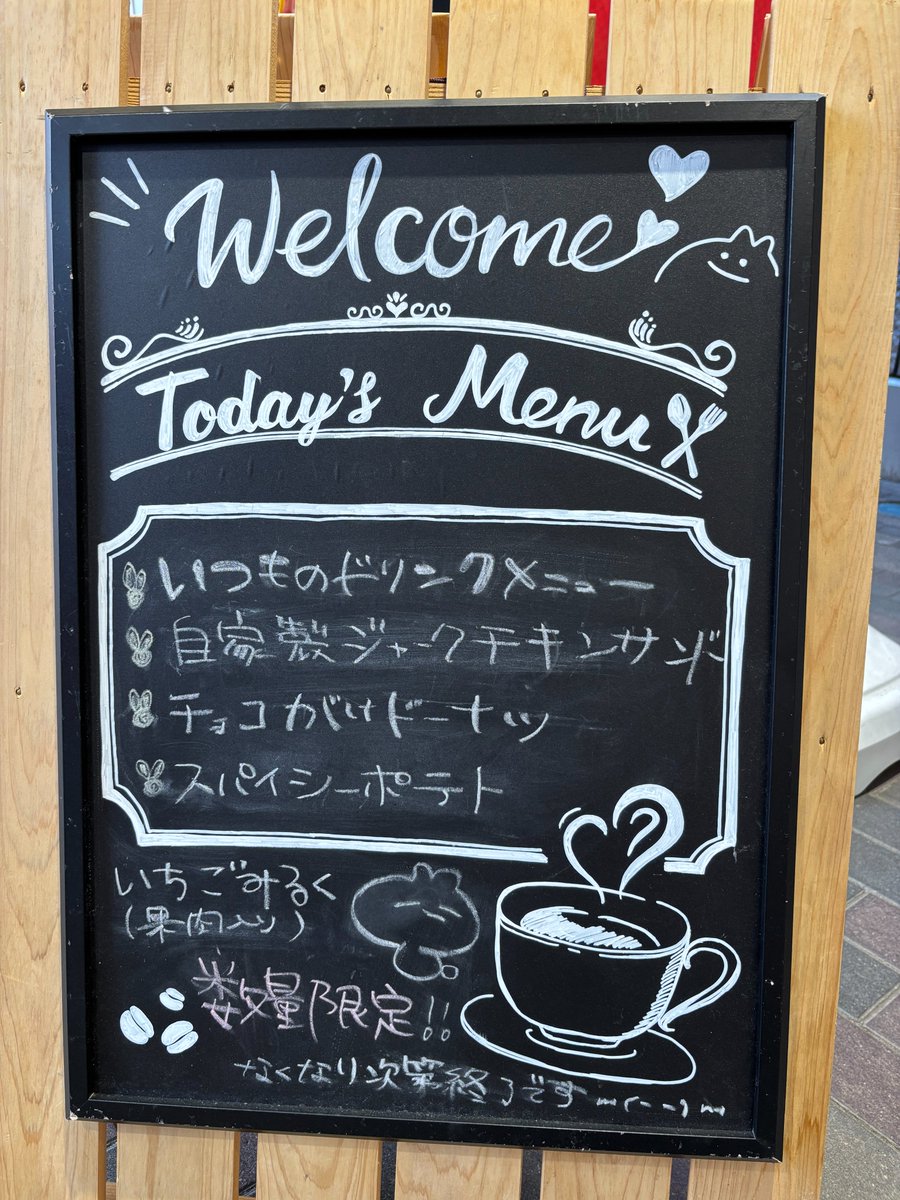 Welcome
Today's Menu
いつものドリンクメニュー
自家製ジャークチキンサンド
チョコがけドーナツ
スパイシーポテト
いちごみるく
(果肉入り)
数量限定!!
なくなり次第終了です